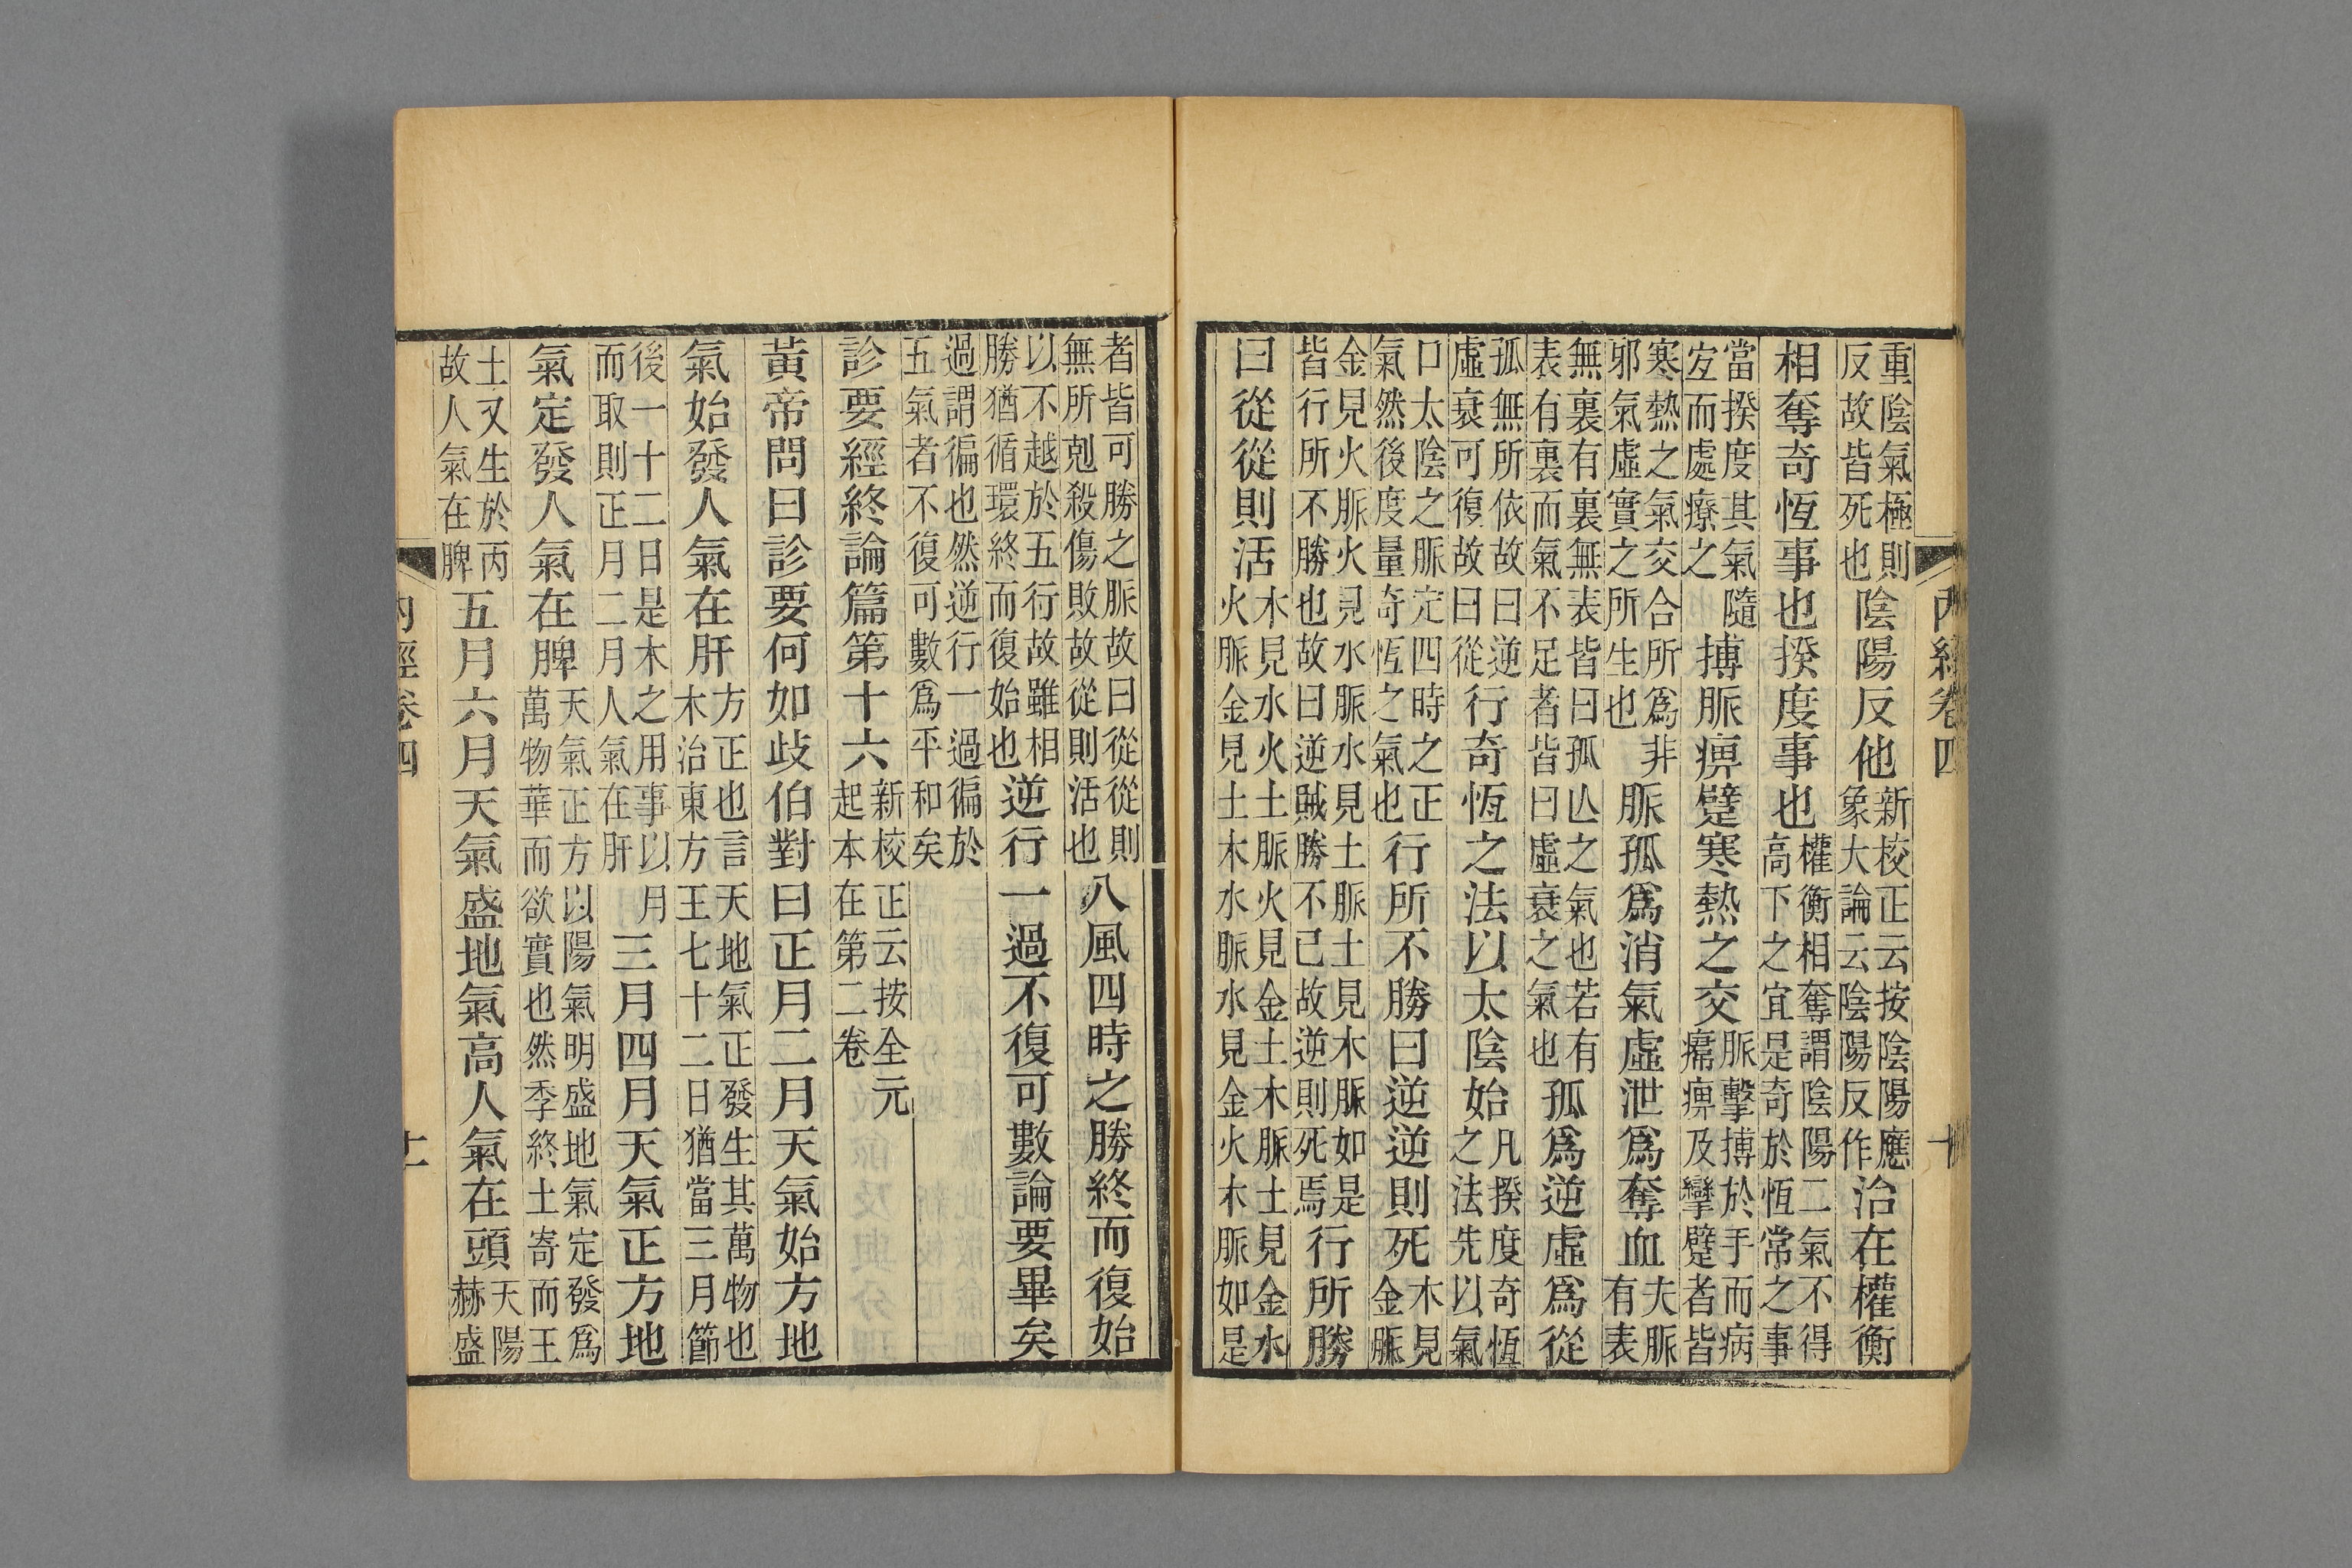 重陰氣極則反故皆死也陰陽反他新校正云按陰陽應象大論云陰陽反作治在權衡
相奪奇恆事也揆度事也權衡相奪謂陰陽二氣不得高下之宜是奇於恆常之事
當揆度其氣隨宐而處療之搏脈痹躄寒熱之交脈擊搏於手而病痹及攣躄者皆
寒熱之氣交合所爲非邪氣虛實之所生也脈孤爲消氣虛泄爲奪血夫脈有表
無裏有裏無表皆曰孤亾之氣也若有表有裏而氣不足者皆曰虛衰之氣也孤爲逆虛爲從
孤無所依故曰逆虛衰可復故曰從行奇恆之法以太陰始凡揆度奇恆之法先以氣
口太陰之脈定四時之正氣然後度量奇恆之氣也行所不勝曰逆逆則死木見金脈
金見火脈火見水脈水見土脈土見木脈如是皆行所不勝也故曰逆賊勝不已故逆則死焉行所勝
曰從從則活木見水火土脈火見金土木脈土見金水火脈金見土木水脈水見金火木脈如是
者皆可勝之脈故曰從從則無所剋殺傷敗故從則活也八風四時之勝終而復始
以不越於五行故雖相勝猶循環終而復始也逆行一過不復可數論要畢矣
過謂徧也然逆行一過徧於五氣者不復可數爲平和矣
診要經終論篇第十六新校正云按全元起本在第二卷
黃帝問曰診要何如歧伯對曰正月二月天氣始方地
氣始發人氣在肝方正也言天地氣正發生其萬物也木治東方王七十二日猶當三月節
後一十二日是木之用事以月而取則正月二月人氣在肝三月四月天氣正方地
氣定發人氣在脾天氣正方以陽氣明盛地氣定發爲萬物華而欲實也然季終土寄而王
土又生於丙故人氣在脾五月六月天氣盛地氣高人氣在頭天陽赫盛
內經卷四